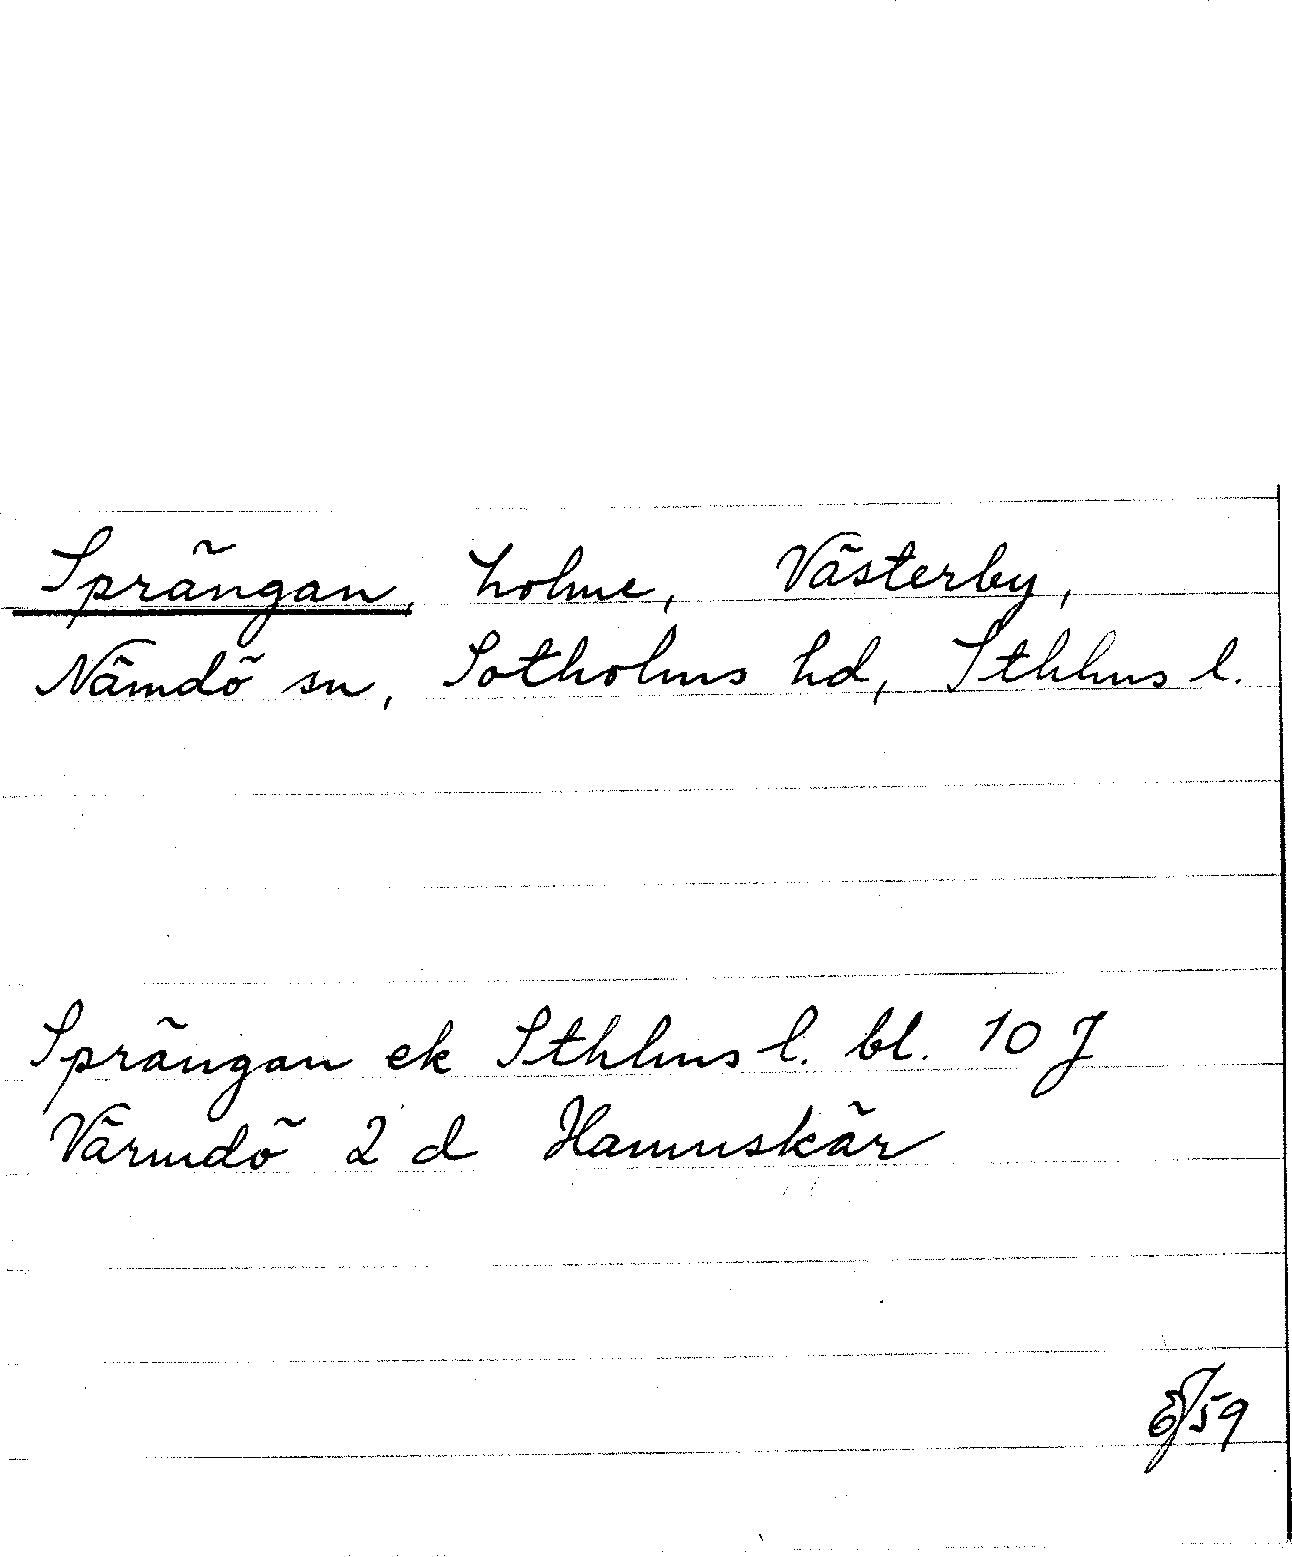 Sprängan, holme, Västerby,
Nämdö sn, Sotholms hd, Sthlms l.
Sprängan ek Sthlms l. bl. 10 J
Värmdö 2 d Hamnskär
/59